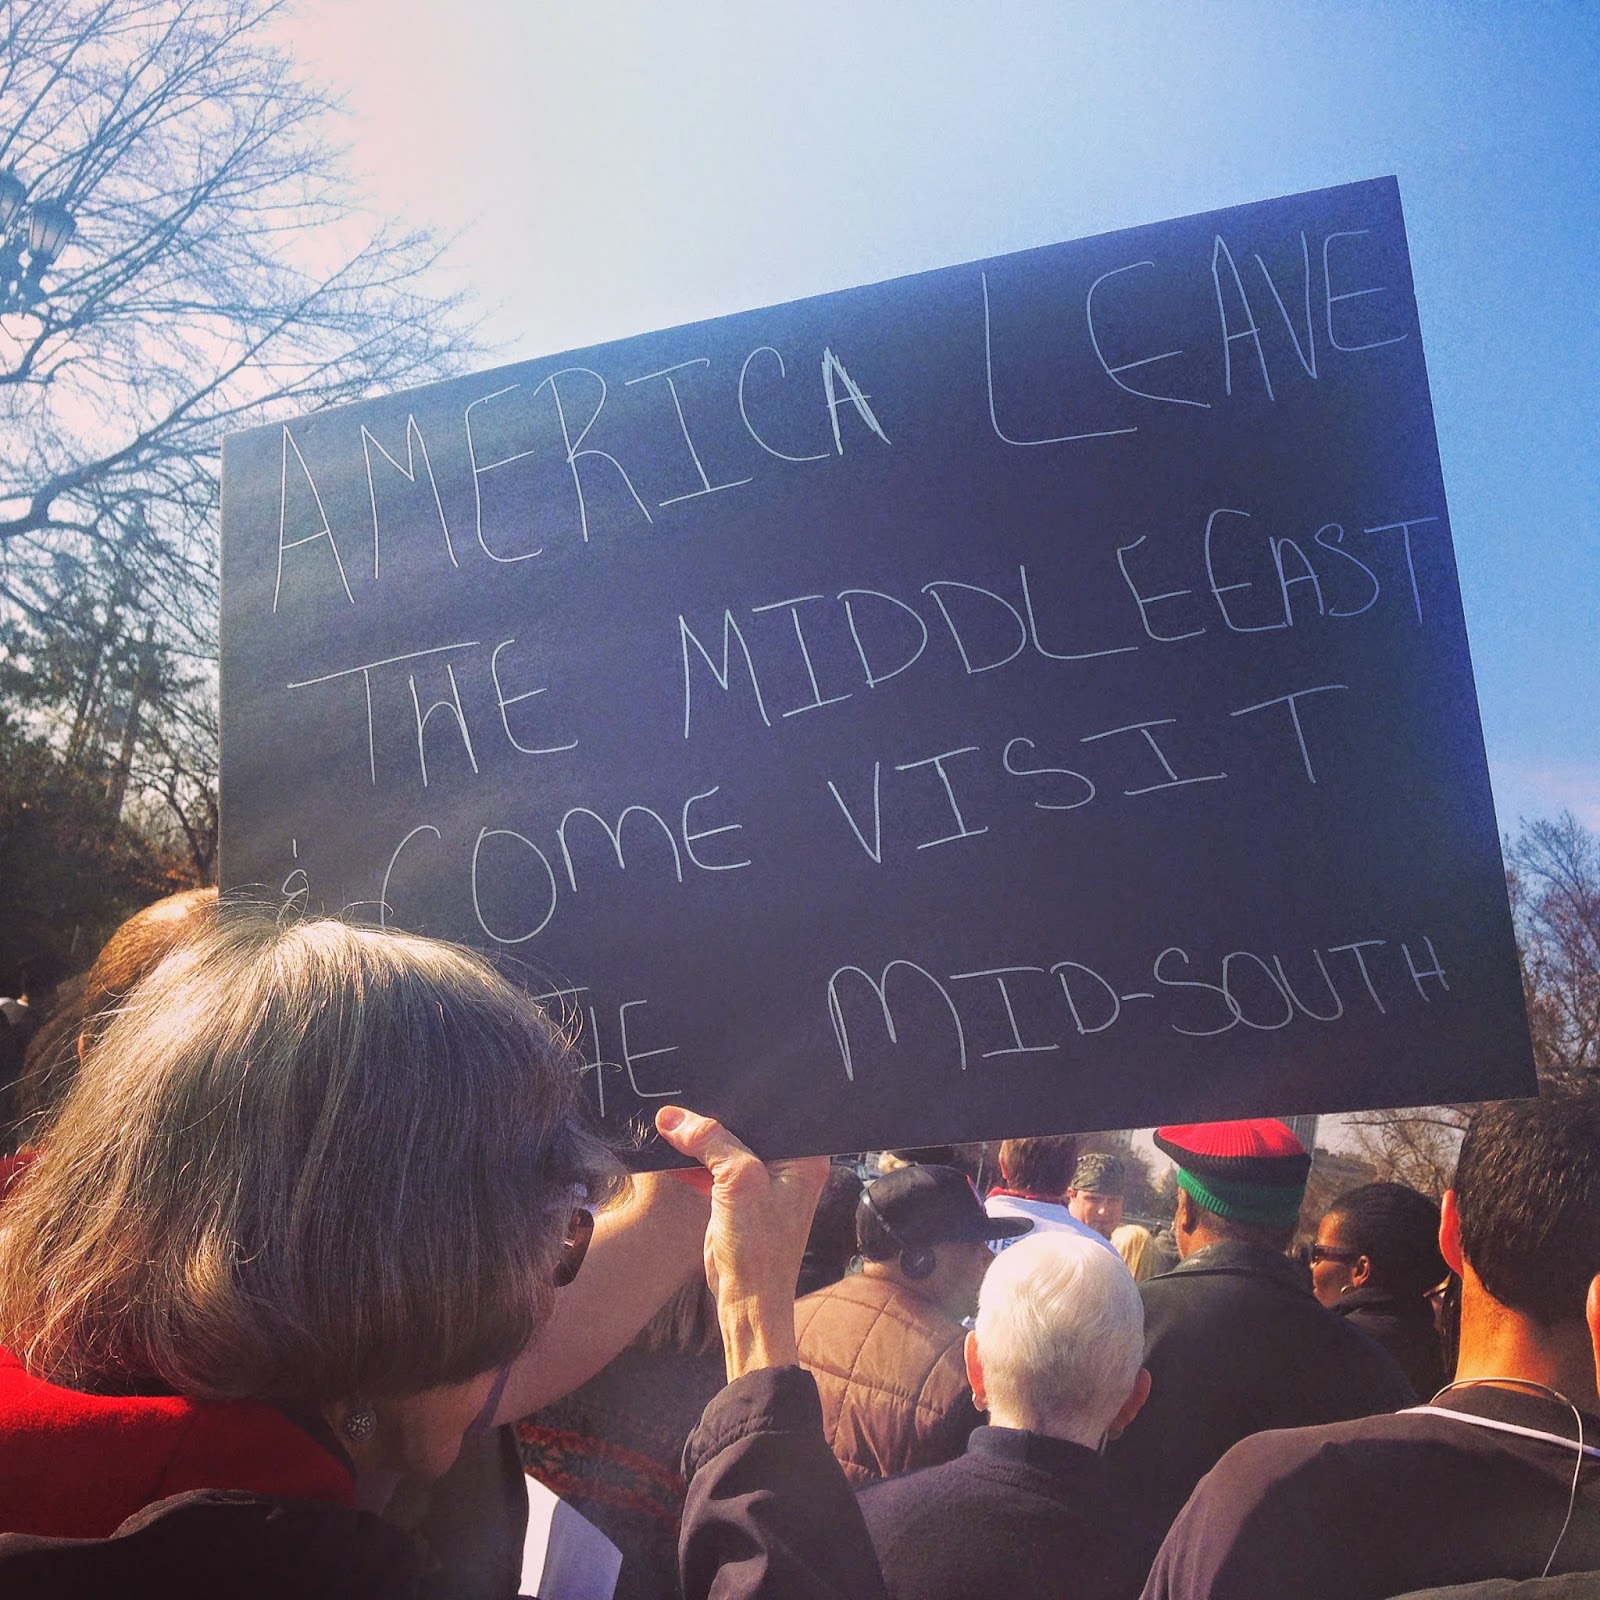 AMERICA LEAVE
THE MIDDLE EAST
& COME VISIT
THE MID-SOUTH